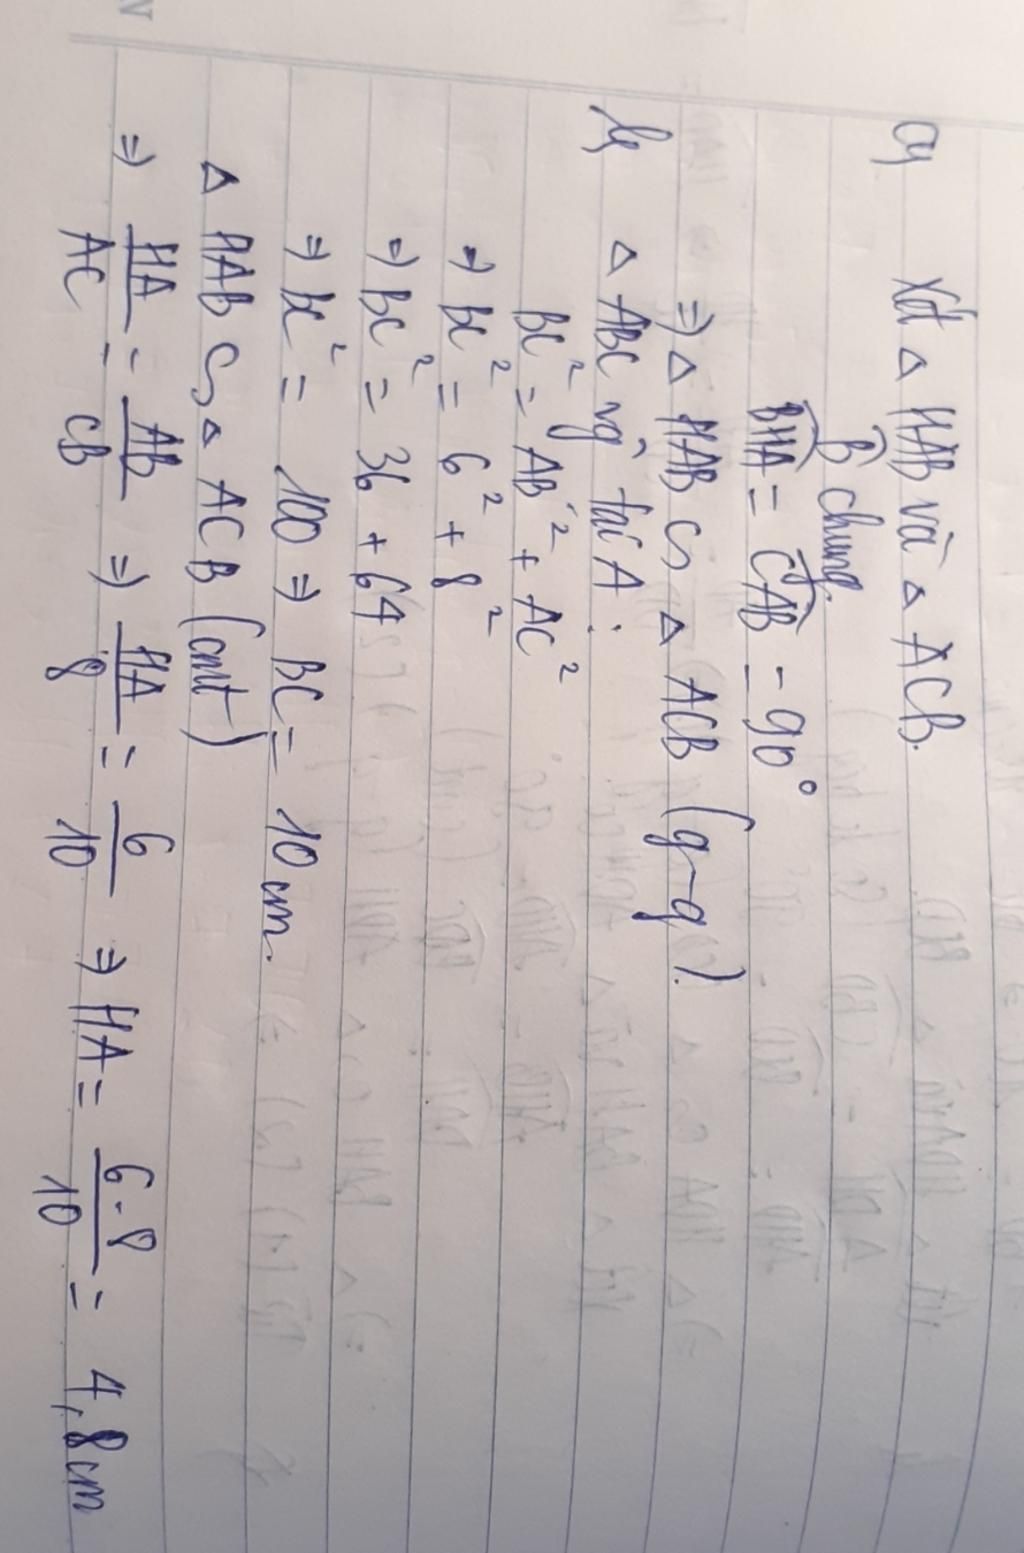 a) Xét △ HAB và △ ACB.
B̂ chung.
BHA = CAB = 90°
⇒ △ HAB ∽ △ ACB (g-g).
b) △ ABC vg tại A:
BC² = AB² + AC²
⇒ BC² = 6² + 8²
⇒ BC² = 36 + 64
⇒ BC² = 100 ⇒ BC = 10 cm.
△ HAB ∽ △ ACB (cmt)
⇒ HA/AC = AB/CB ⇒ HA/8 = 6/10 ⇒ HA = 6.8/10 = 4,8cm